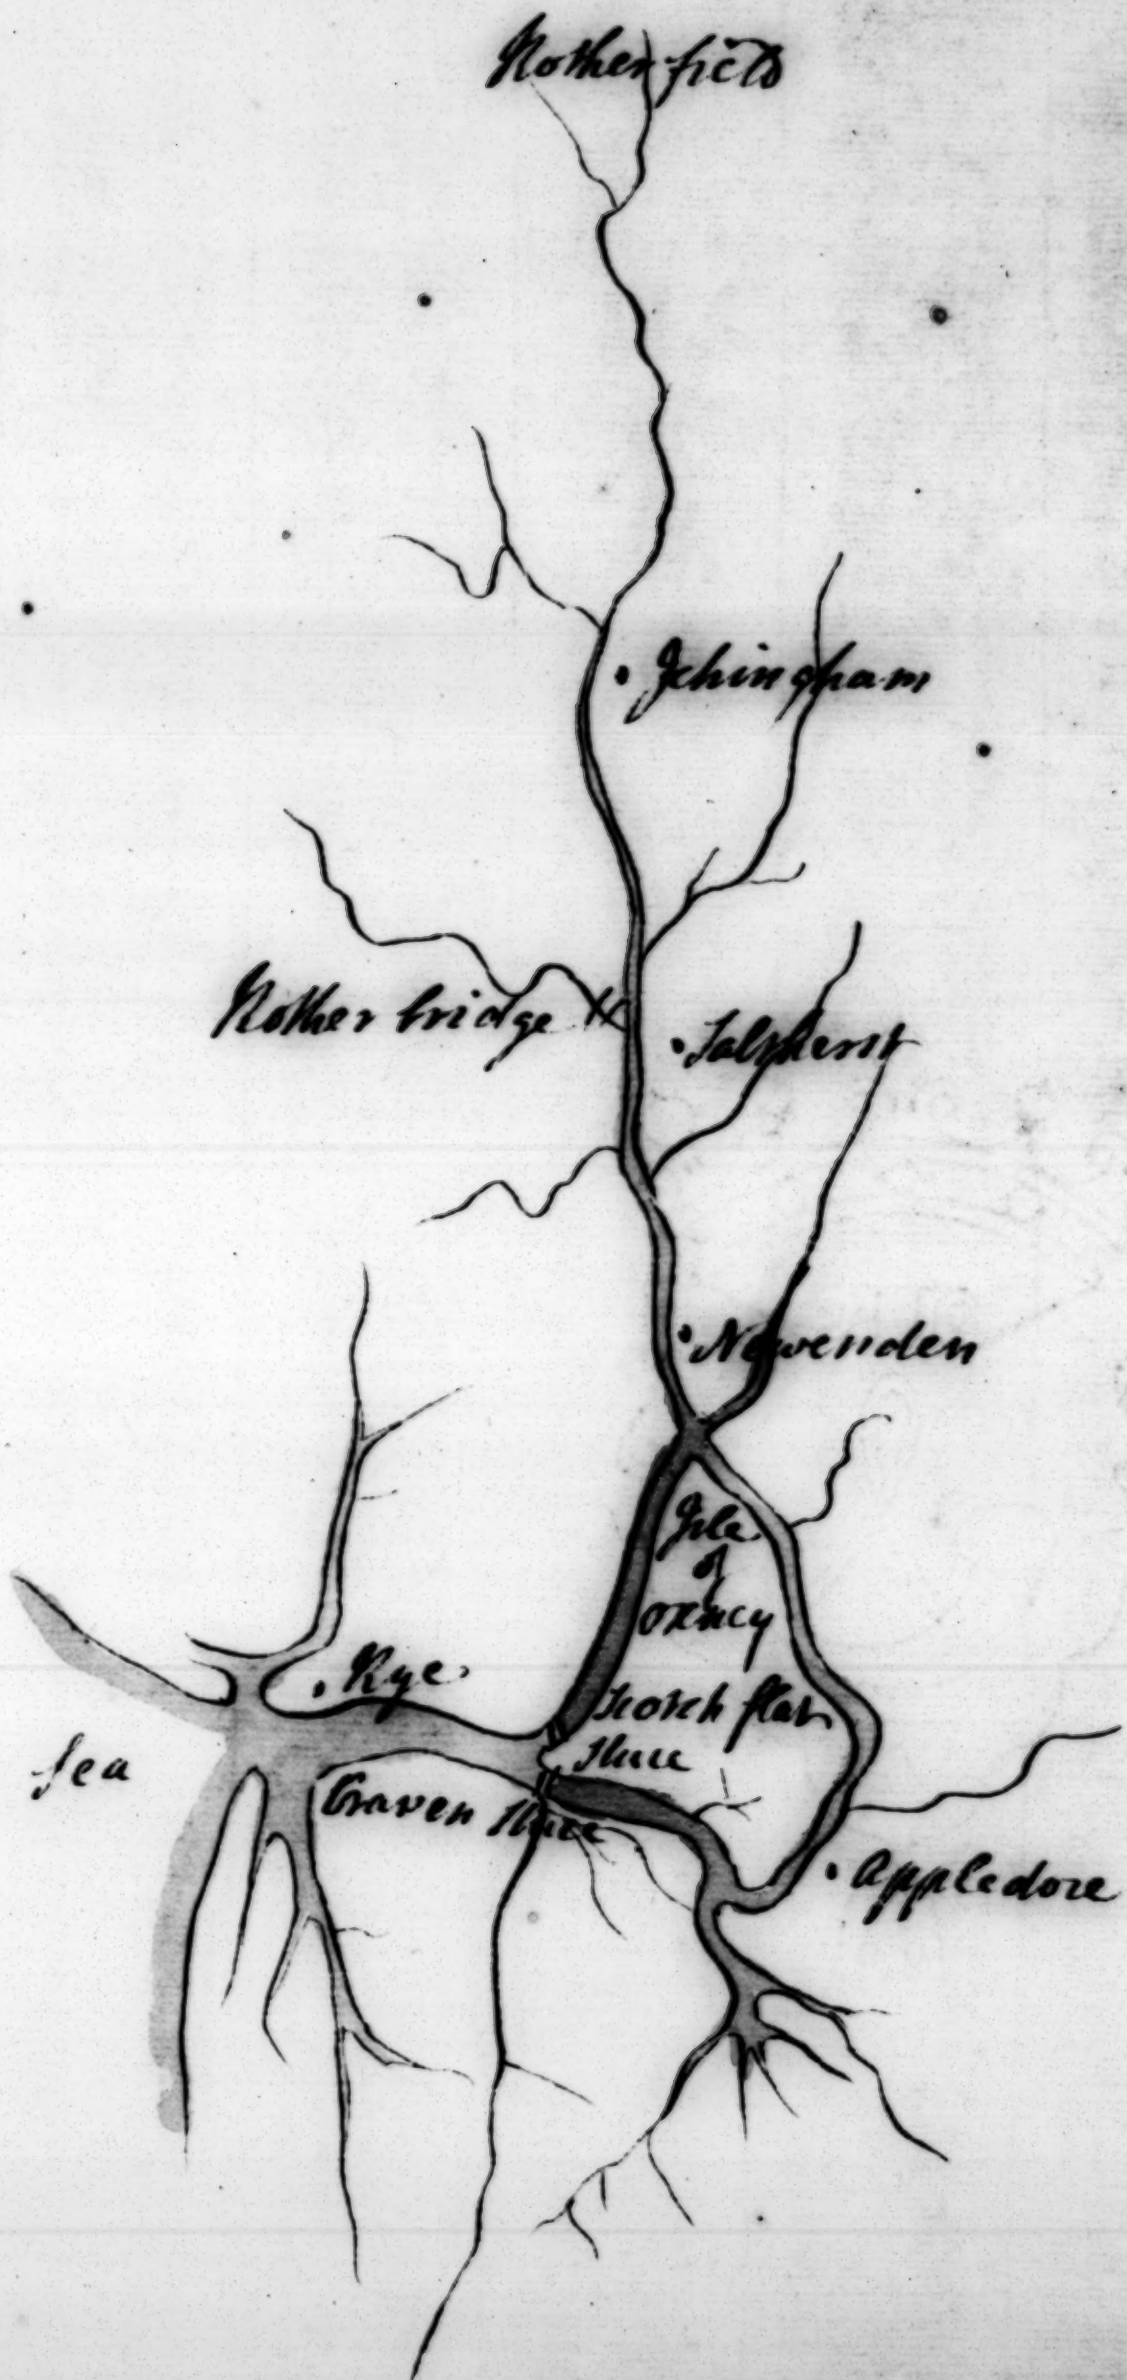 Rotherfield
Ichingham
Rother bridge
Salpherst
Newenden
Isle
of
oxney
Rye
Scotch flat
Sluce
Sea
Craven Sluce
Appledore